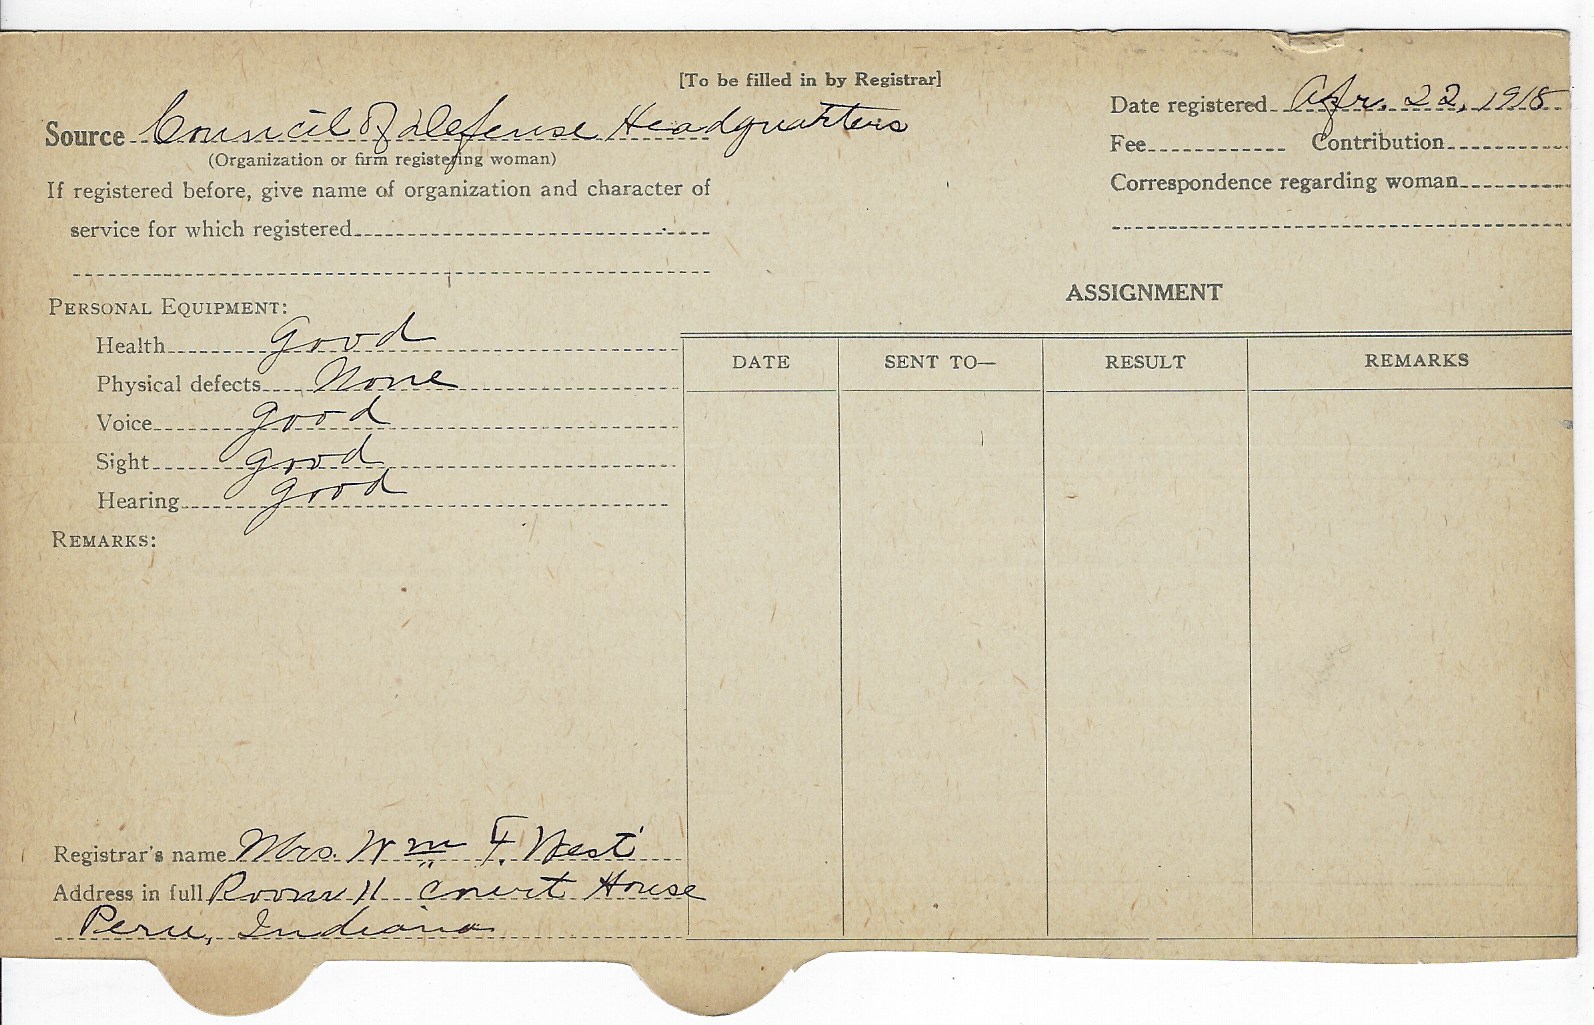 [To be filled in by Registrar]
Source Council of Defense Headquarters
(Organization or firm registering woman)
If registered before, give name of organization and character of
service for which registered
PERSONAL EQUIPMENT:
Health Good
Physical defects None
Voice good
Sight good
Hearing good
REMARKS:
Registrar's name Mrs. Wm F. West
Address in full Room 11 Court House
Peru, Indiana
Date registered Apr. 22, 1918
Fee Contribution
Correspondence regarding woman
ASSIGNMENT
DATE SENT TO— RESULT REMARKS